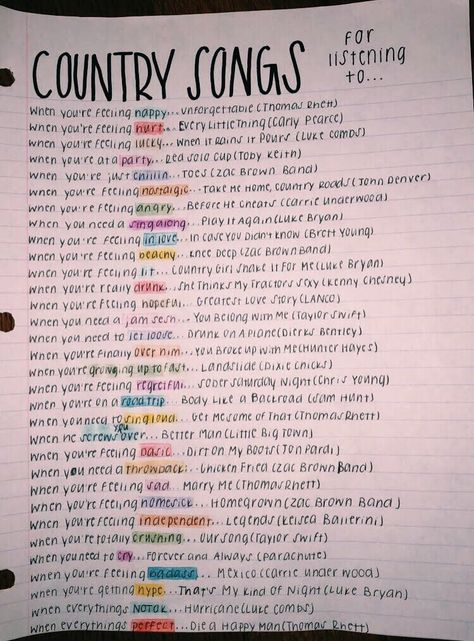 COUNTRY SONGS
FOR
listening
to...
When you're feeling happy... Unforgettable (Thomas Rhett)
When you're feeling hurt... Every Little Thing (Carly Pearce)
When you're feeling lucky... When It Rains It Pours (Luke Combs)
When you're at a party... Red Solo Cup (Toby Keith)
When you're just chillin... Toes (Zac Brown Band)
When you're feeling nostalgic... Take Me Home, Country Roads (John Denver)
When you're feeling angry... Before He Cheats (Carrie Underwood)
When you need a singalong... Play It Again (Luke Bryan)
When you're feeling in love... In Case You Didn't Know (Brett Young)
When you're feeling beachy... Knee Deep (Zac Brown Band)
When you're feeling lit... Country Girl Shake It For Me (Luke Bryan)
When you're really drunk... She Thinks My Tractors Sexy (Kenny Chesney)
When you're feeling hopeful... Greatest Love Story (LANCO)
When you need a jam sesh... You Belong With Me (Taylor Swift)
When you need to let loose... Drunk On A Plane (Dierks Bentley)
When you're finally over him... You Broke Up With Me (Hunter Hayes)
When you're growing up to fast... Landslide (Dixie Chicks)
When you're feeling regretful... Sober Saturday Night (Chris Young)
When you're on a road trip... Body Like A Backroad (Sam Hunt)
When you need to sing loud... Get Me Some of That (Thomas Rhett)
When he screws you over... Better Man (Little Big Town)
When you're feeling basic... Dirt On My Boots (Jon Pardi)
When you need a throwback... Chicken Fried (Zac Brown Band)
When you're feeling sad... Marry Me (Thomas Rhett)
When you're feeling homesick... Homegrown (Zac Brown Band)
When you're feeling independent... Legends (Kelsea Ballerini)
When you're totally crushing... Our Song (Taylor Swift)
When you need to cry... Forever and Always (Parachute)
When you're feeling badass... Mexico (Carrie Underwood)
When you're getting hype... That's My Kind of Night (Luke Bryan)
When everythings NOT OK... Hurricane (Luke Combs)
When everythings perfect... Die a Happy Man (Thomas Rhett)